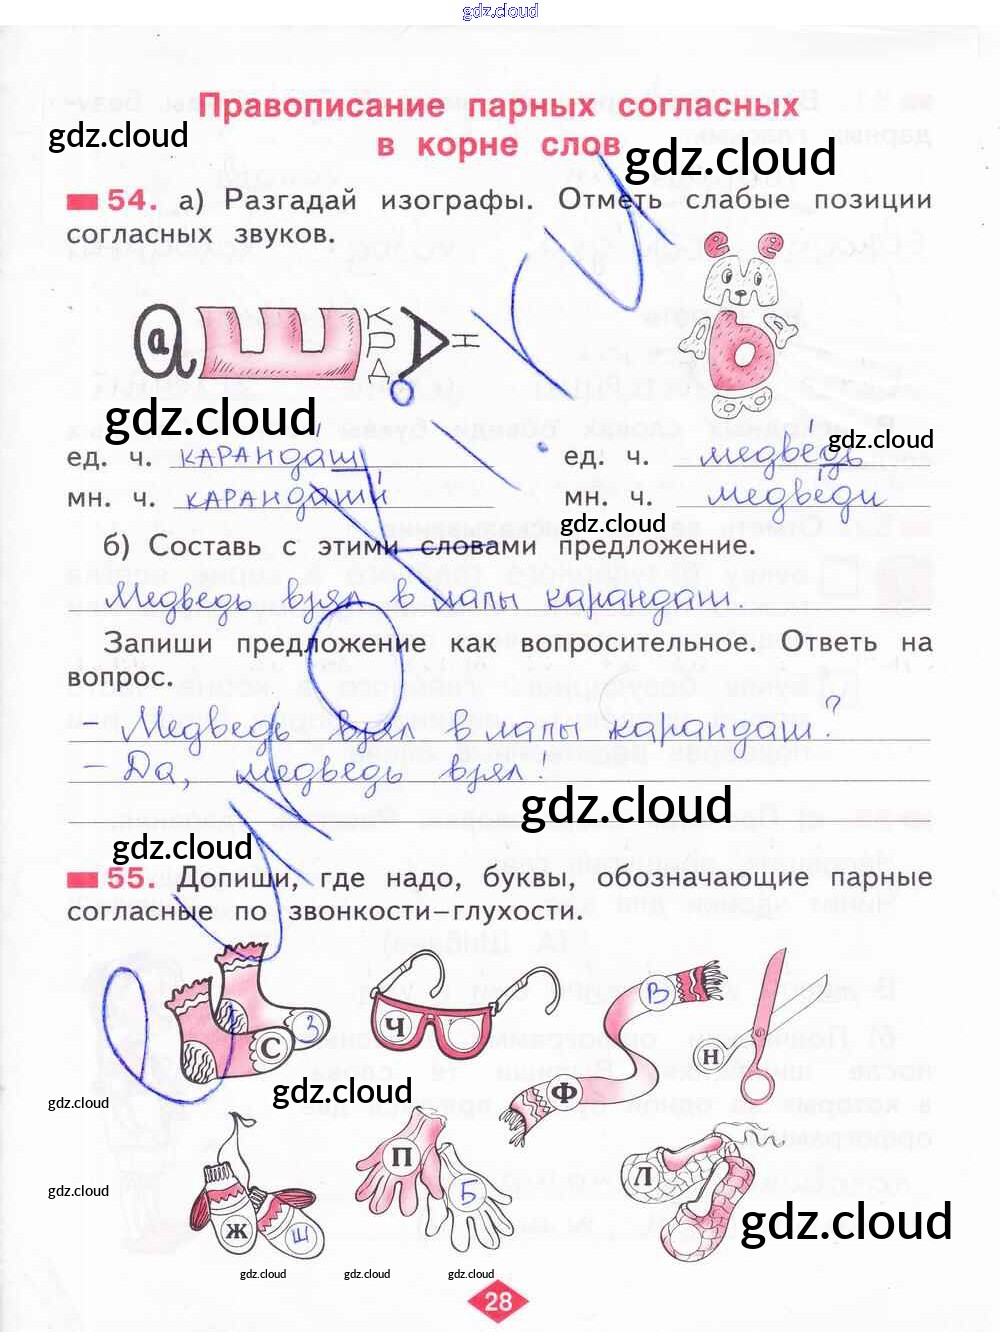 gdz.cloud
Правописание парных согласных
gdz.cloud
в корне слов
gdz.cloud
54. а) Разгадай изографы. Отметь слабые позиции
согласных звуков.
gdz.cloud
gdz.cloud
ед. ч. карандаш
ед. ч. медведь
мн. ч. карандаши
мн. ч. медведи
gdz.cloud
б) Составь с этими словами предложение.
Медведь взял в лапы карандаш.
Запиши предложение как вопросительное. Ответь на
вопрос.
- Медведь взял в лапы карандаш?
- Да, медведь взял.
gdz.cloud
gdz.cloud
55. Допиши, где надо, буквы, обозначающие парные
согласные по звонкости–глухости.
З
С
Ч
В
Ф
Н
gdz.cloud
gdz.cloud
П
Б
Л
gdz.cloud
Ж
Ш
gdz.cloud
gdz.cloud gdz.cloud gdz.cloud
28